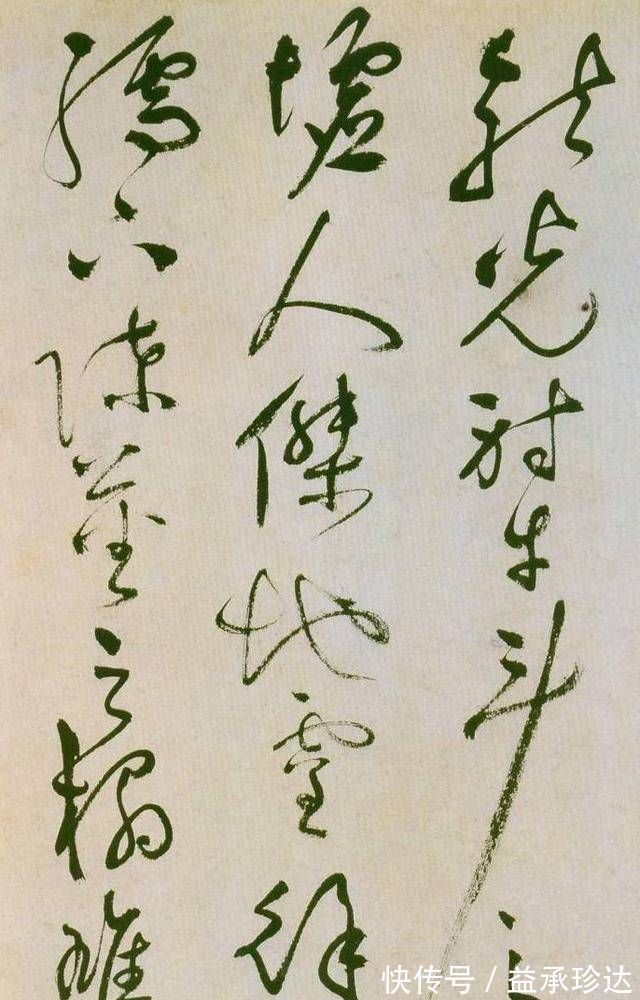 龍光射牛斗之
墟人傑地靈徐
孺下陳蕃之榻雄
快传号 / 益承珍达